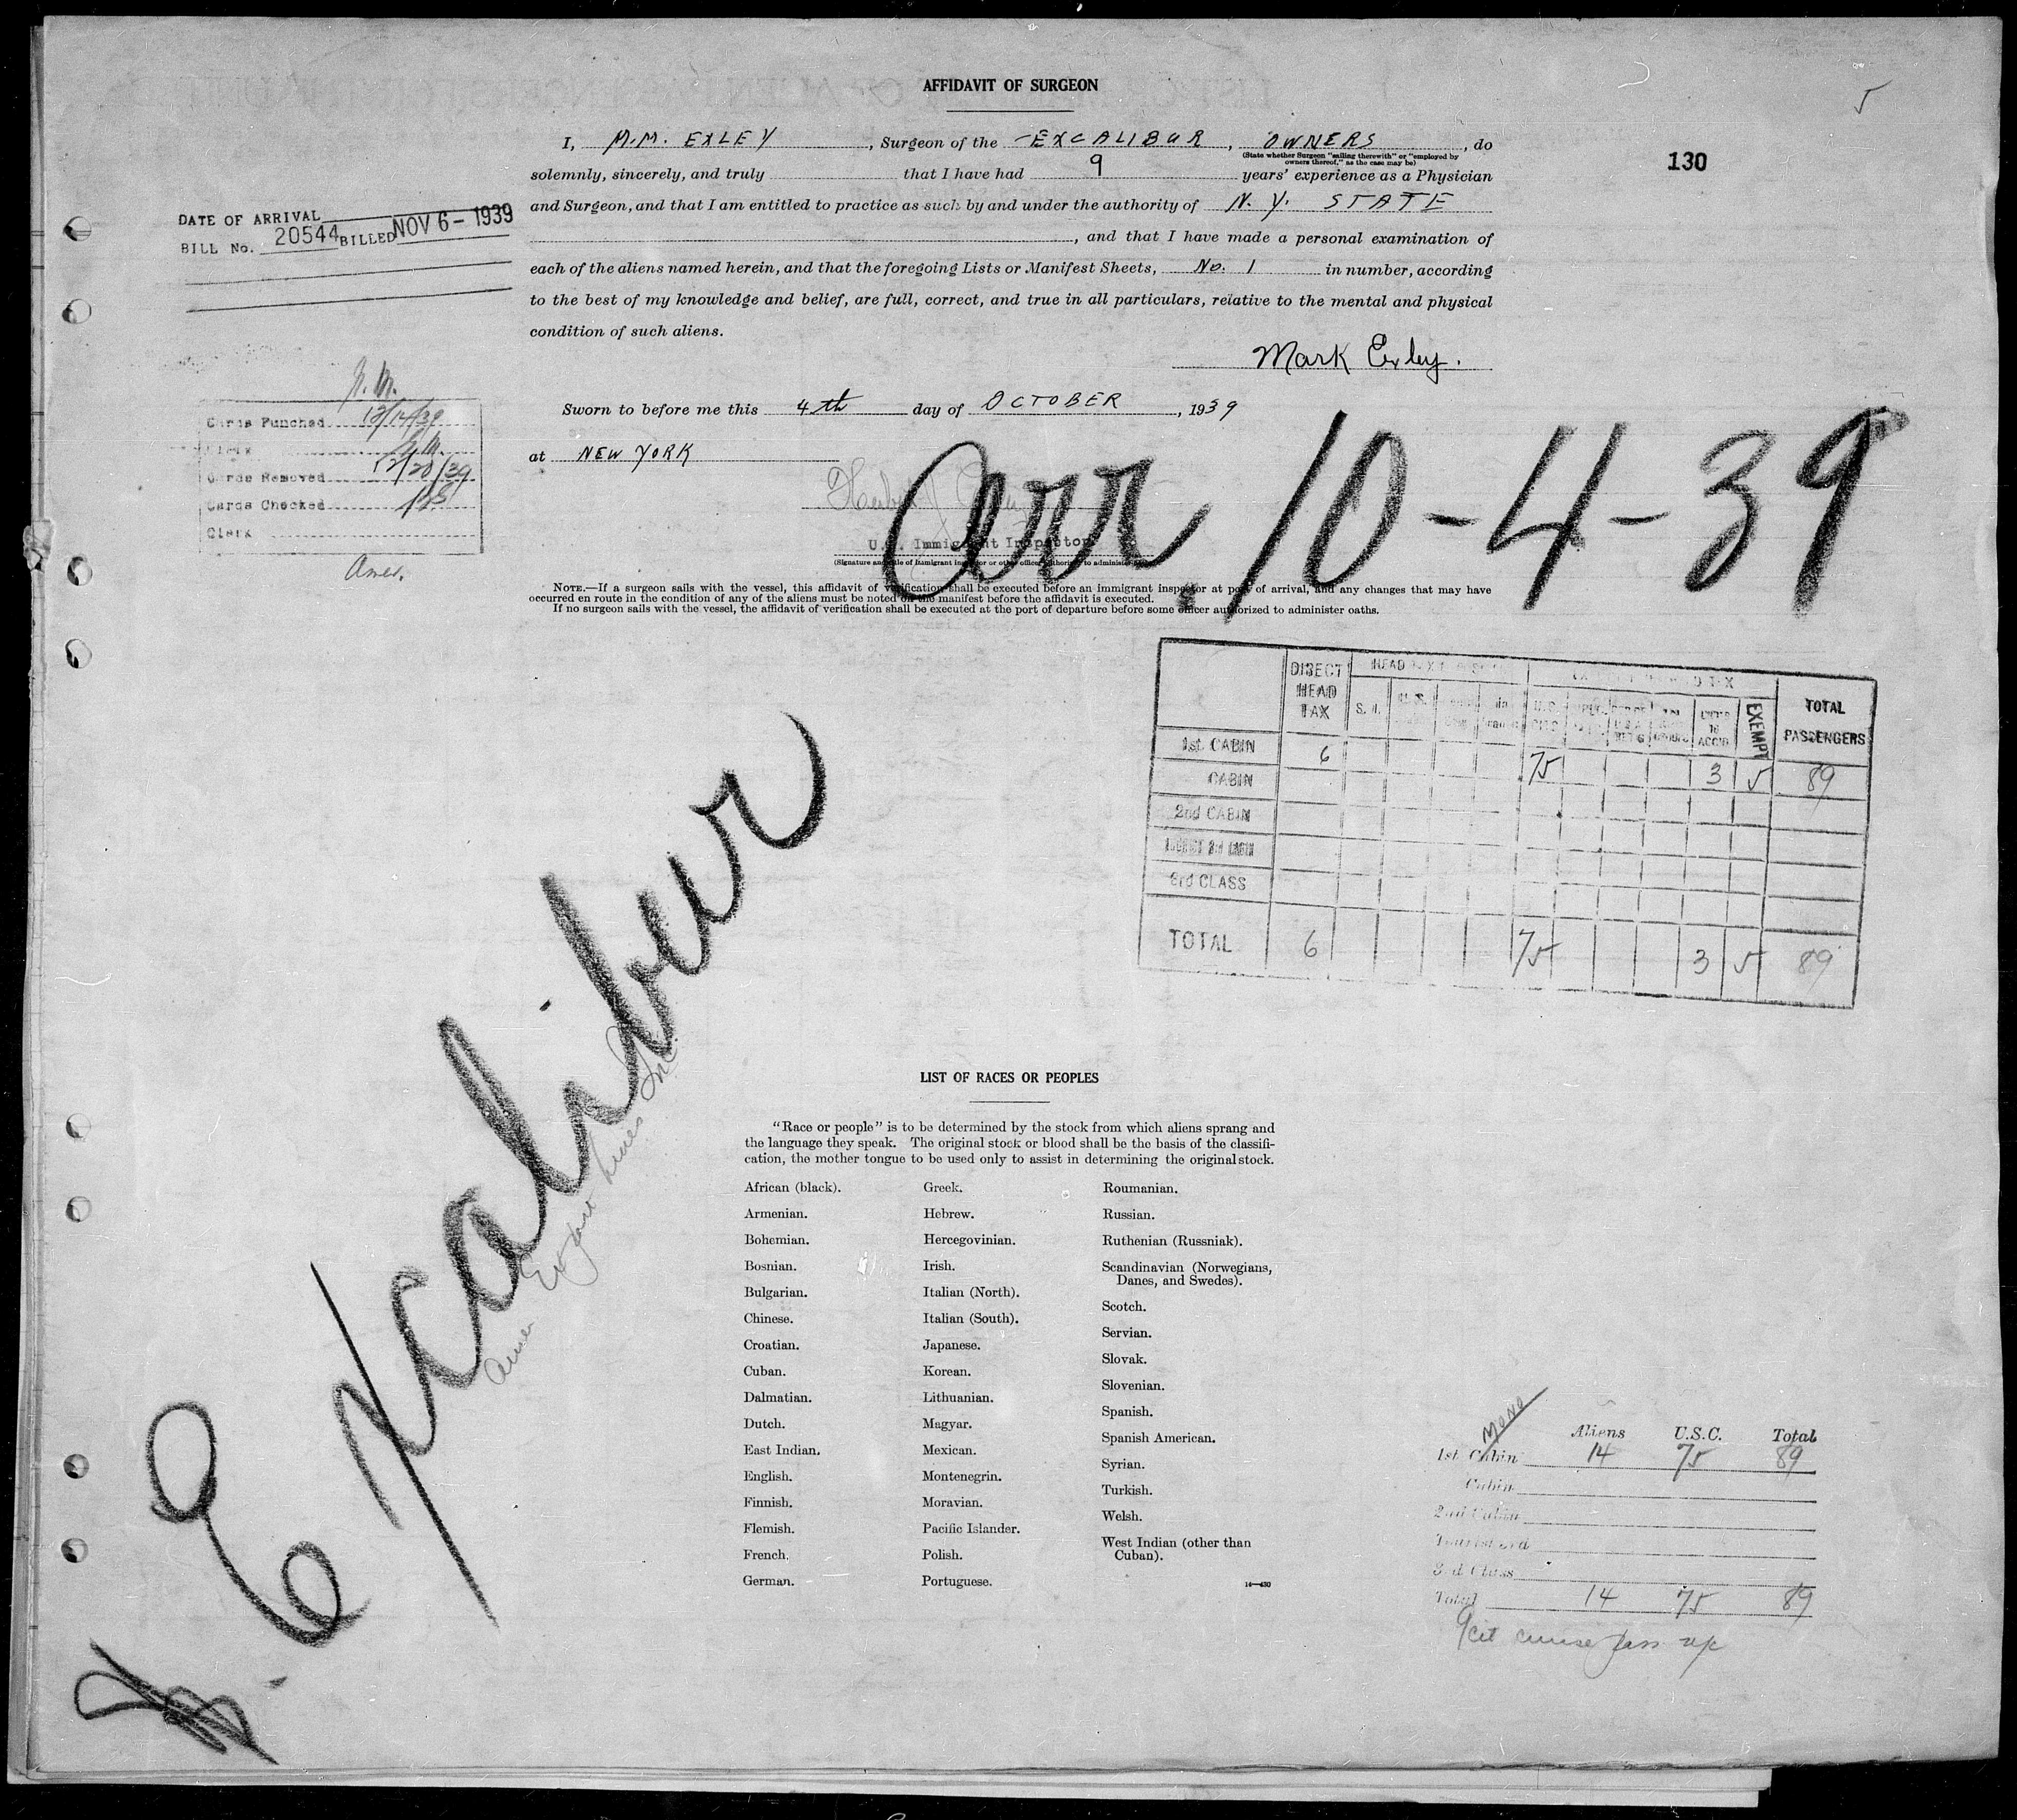 AFFIDAVIT OF SURGEON
5
I, M.M. EXLEY, Surgeon of the EXCALIBUR, OWNERS, do
(State whether Surgeon "sailing therewith" or "employed by
owners thereof," as the case may be)
130
solemnly, sincerely, and truly that I have had 9 years' experience as a Physician
and Surgeon, and that I am entitled to practice as such by and under the authority of N. Y. STATE
, and that I have made a personal examination of
each of the aliens named herein, and that the foregoing Lists or Manifest Sheets, No. 1 in number, according
to the best of my knowledge and belief, are full, correct, and true in all particulars, relative to the mental and physical
condition of such aliens.
DATE OF ARRIVAL
BILL No. 20544 BILLED NOV 6 - 1939
Mark Exley.
Sworn to before me this 4th day of OCTOBER, 1939
at NEW YORK
Cards Punched 12/14/39
Clerk
Cards Removed 12/20/39
Cards Checked
Clerk
Amer.
Arr 10-4-39
U.S. Immigrant Inspector
(Signature and title of immigrant inspector or other officer authorized to administer
NOTE.—If a surgeon sails with the vessel, this affidavit of verification shall be executed before an immigrant inspector at port of arrival, and any changes that may have
occurred en route in the condition of any of the aliens must be noted on the manifest before the affidavit is executed.
If no surgeon sails with the vessel, the affidavit of verification shall be executed at the port of departure before some officer authorized to administer oaths.
DIRECT HEAD TAX
S. I.
U.S. CITS
UNDER 16 ACC'D
EXEMPT
TOTAL PASSENGERS
1st CABIN 6 75 3 5 89
CABIN
2nd CABIN
TOURIST 3rd CABIN
3rd CLASS
TOTAL 6 75 3 5 89
Excalibur
Amer Export Lines Inc
LIST OF RACES OR PEOPLES
"Race or people" is to be determined by the stock from which aliens sprang and
the language they speak. The original stock or blood shall be the basis of the classifi-
cation, the mother tongue to be used only to assist in determining the original stock.
African (black).
Armenian.
Bohemian.
Bosnian.
Bulgarian.
Chinese.
Croatian.
Cuban.
Dalmatian.
Dutch.
East Indian.
English.
Finnish.
Flemish.
French.
German.
Greek.
Hebrew.
Hercegovinian.
Irish.
Italian (North).
Italian (South).
Japanese.
Korean.
Lithuanian.
Magyar.
Mexican.
Montenegrin.
Moravian.
Pacific Islander.
Polish.
Portuguese.
Roumanian.
Russian.
Ruthenian (Russniak).
Scandinavian (Norwegians,
Danes, and Swedes).
Scotch.
Servian.
Slovak.
Slovenian.
Spanish.
Spanish American.
Syrian.
Turkish.
Welsh.
West Indian (other than
Cuban).
14—430
MONO
Aliens U.S.C. Total
1st Cabin 14 75 89
Cabin
2nd Cabin
Tourist 3rd
3rd Class
Total 14 75 89